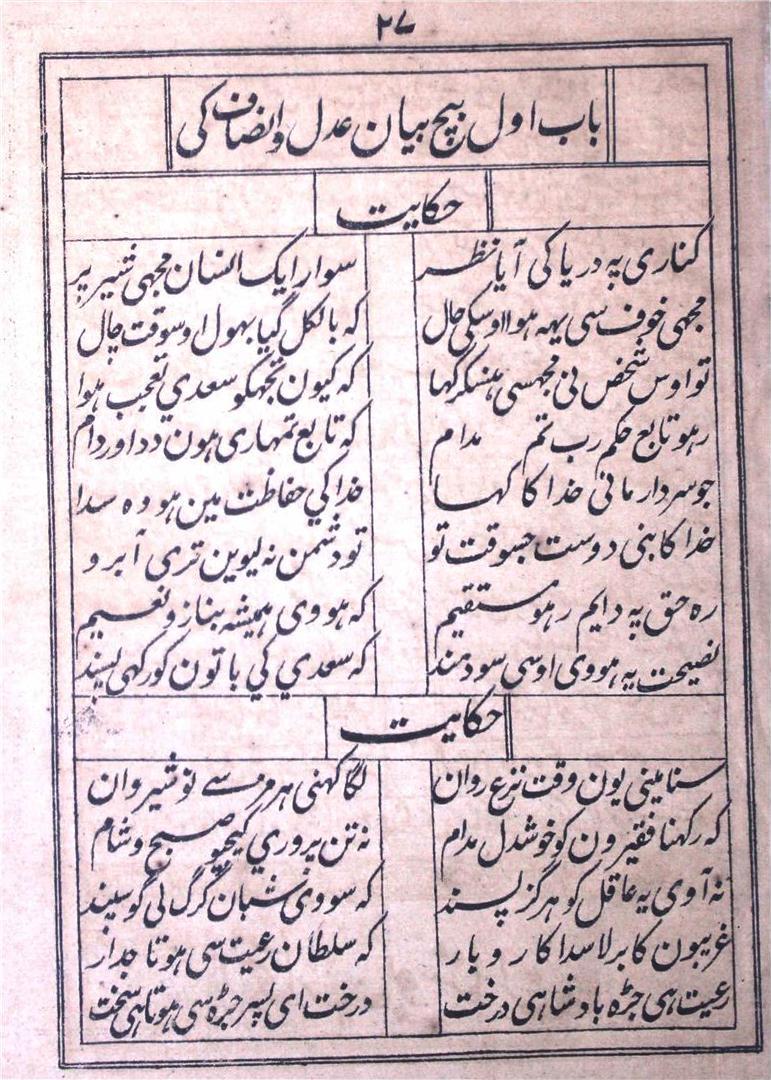 ۲۷
باب اول بیچ بیان عدل و انصاف کی
حکایت
کناری پہ دریا کی آیا نظر سوار ایک انسان مجھی شیر پر
مجھی خوف سی یہہ ہوا اوسکی حال کہ بالکل گیا بہول اوسوقت چال
تو اوس شخص نی مجھسی ہنسکر کہا کہ کیون تجھکو سعدی تعجب ہوا
رہو تابع حکم رب تم مدام کہ تابع تمہاری ہون دد اور دام
جو سردار مانی خدا کا کہا خدا کی حفاظت مین ہو وہ سدا
خدا کا بنی دوست جسوقت تو تو دشمن نہ لیوین تری آبرو
رہ حق پہ دایم رہو مستقیم کہ ہووی ہمیشہ بناز و نعیم
نصیحت یہ ہووی اوسی سودمند کہ سعدی کی باتون کو رکھی پسند
حکایت
سنا مینی یون وقت نزع روان لگا کہنی ہرمز سے نوشیروان
کہ رکھنا فقیرون کو خوشدل مدام نہ تن پروری کیجیو صبح و شام
نہ آوی یہ عاقل کو ہرگز پسند کہ سووی شبان گرگ لی گوسپند
غریبون کا بر لا سدا کار و بار کہ سلطان رعیت سی ہو تاجدار
رعیت ہی جڑہ بادشاہی درخت درخت ای پسر جڑہ سی ہوتا ہی سخت